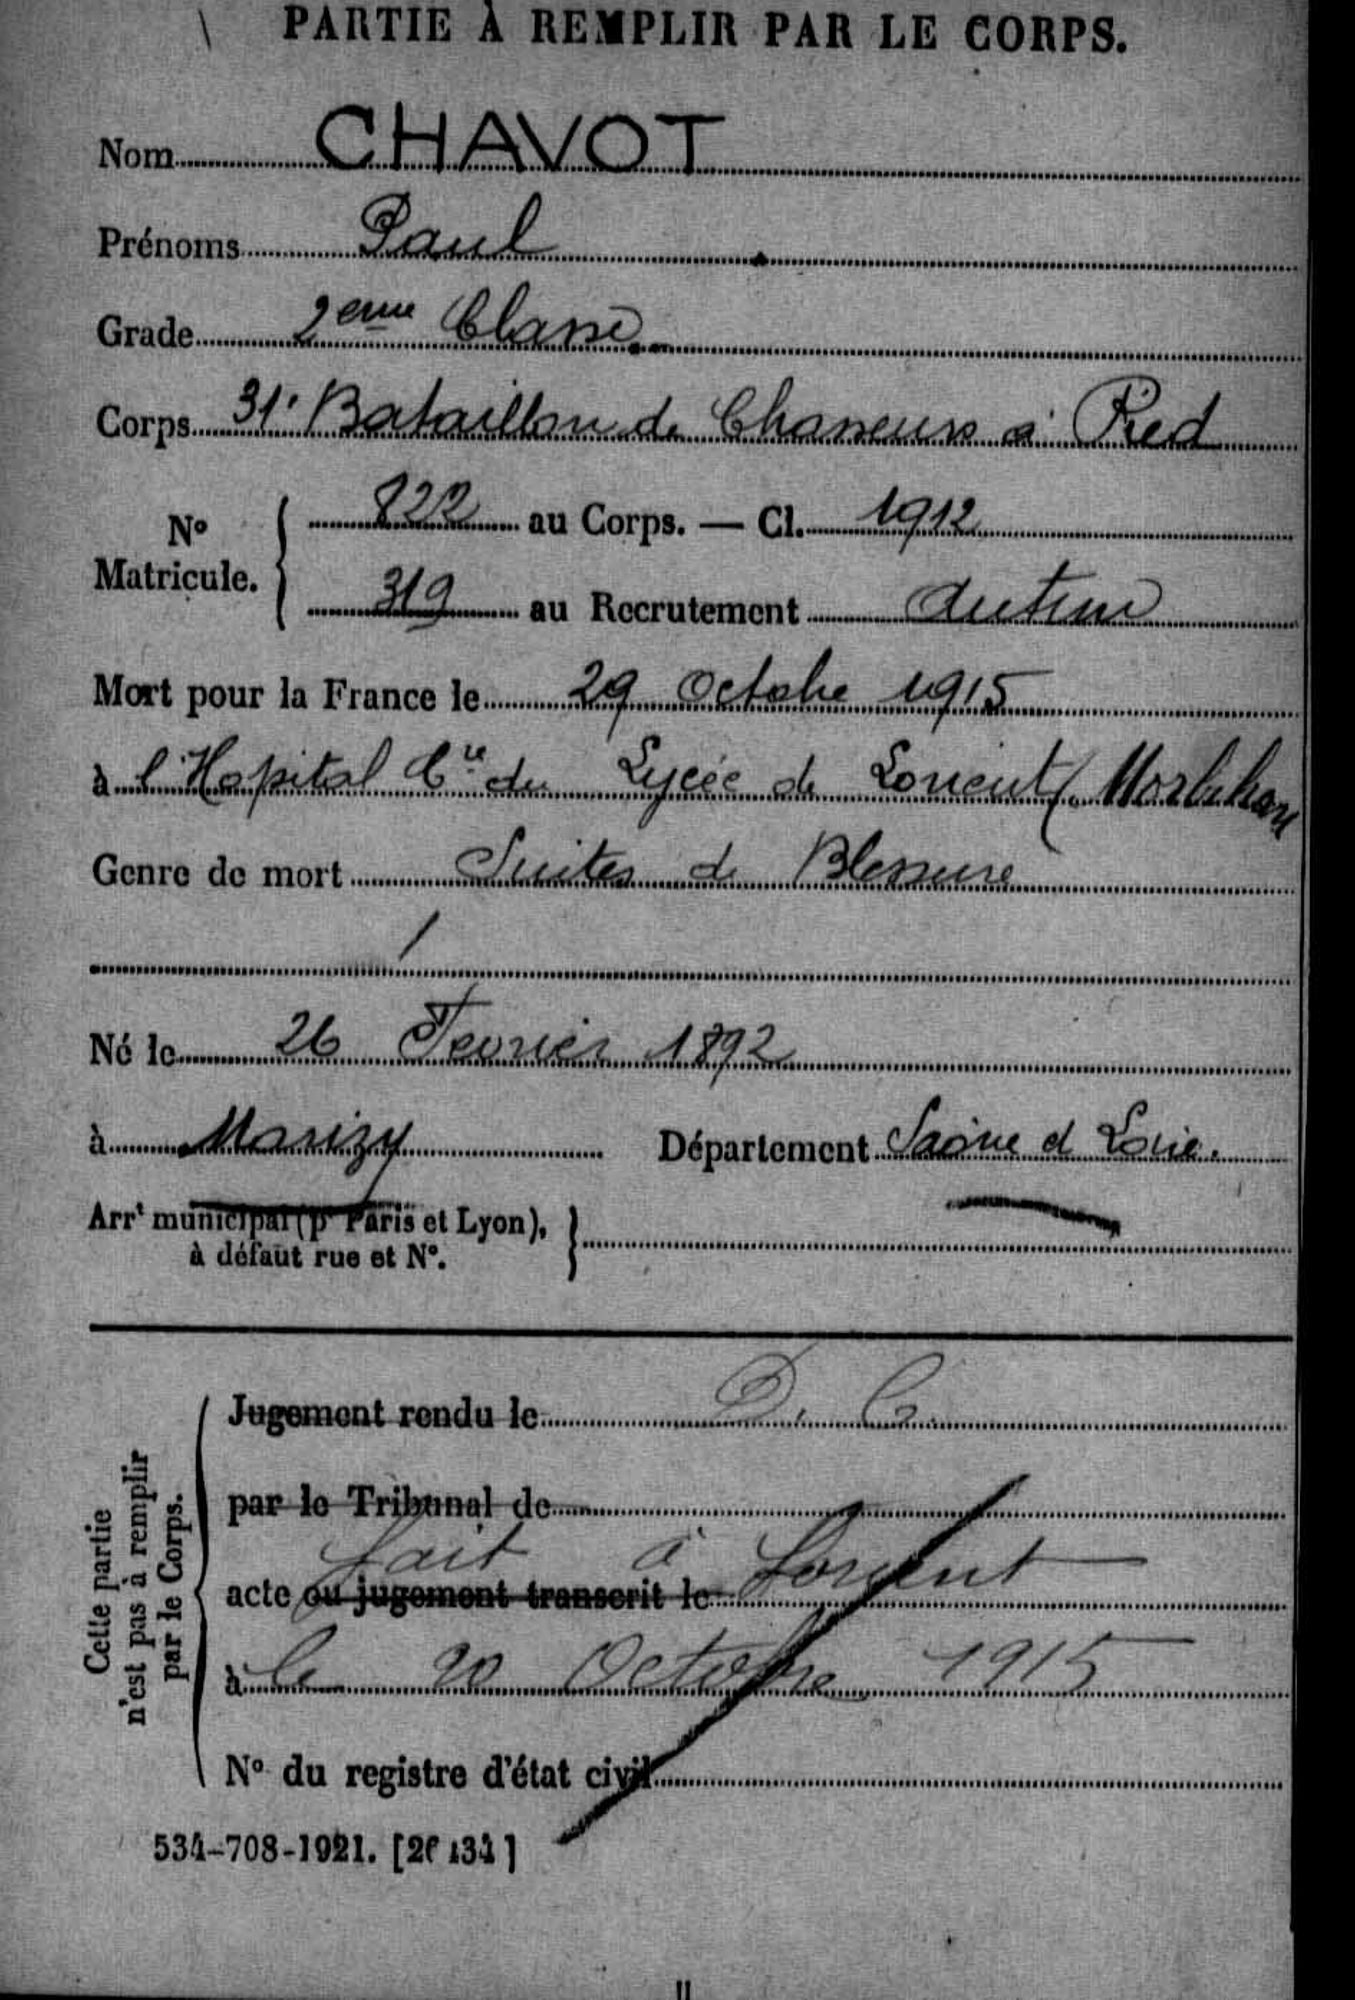 PARTIE À REMPLIR PAR LE CORPS.
Nom CHAVOT
Prénoms Paul
Grade 2eme Classe
Corps 31e Bataillon de Chasseurs à Pied
No Matricule. { 822 au Corps. — Cl. 1912
319 au Recrutement Autun
Mort pour la France le 29 Octobre 1915
à l'Hopital Cre du Lycée de Lorient (Morbihan
Genre de mort Suites de Blessure
Né le 26 Fevrier 1892
à Marizy Département Saône et Loire.
Arrt municipal (pr Paris et Lyon),
à défaut rue et No.
Cette partie
n'est pas à remplir
par le Corps.
Jugement rendu le D. C.
par le Tribunal de
fait à Lorient
acte ou jugement transcrit le
à le 20 Octobre 1915
No du registre d'état civil
534-708-1921. [26434]